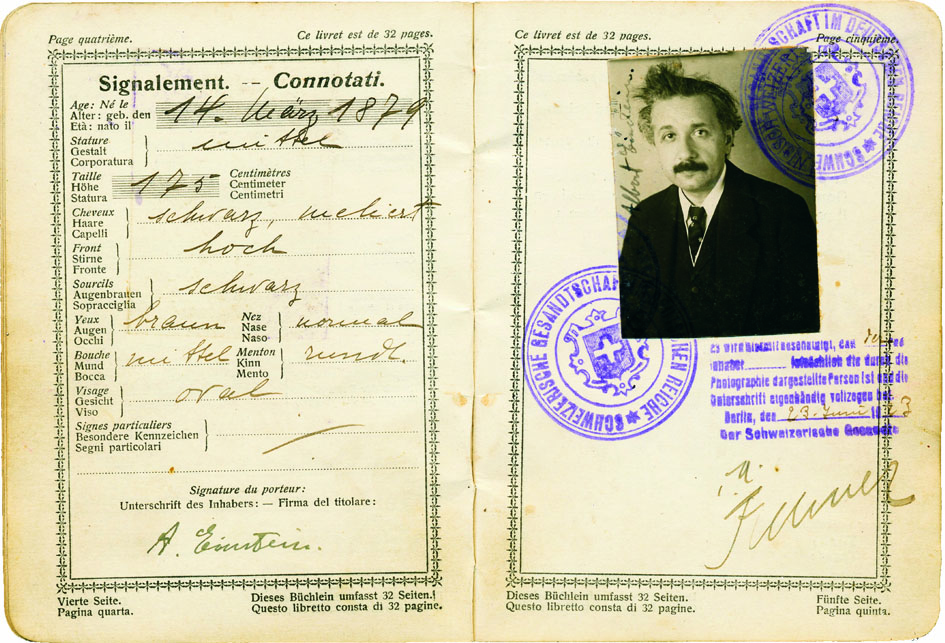 Page quatrième.
Ce livret est de 32 pages.
Signalement. -- Connotati.
Age: Né le
Alter: geb. den
Età: nato il
14. März 1879
Stature
Gestalt
Corporatura
mittel
Taille
Höhe
Statura
175
Centimètres
Centimeter
Centimetri
Cheveux
Haare
Capelli
schwarz, meliert
Front
Stirne
Fronte
hoch
Sourcils
Augenbrauen
Sopracciglia
schwarz
Yeux
Augen
Occhi
braun
Nez
Nase
Naso
normal
Bouche
Mund
Bocca
mittel
Menton
Kinn
Mento
rund.
Visage
Gesicht
Viso
oval
Signes particuliers
Besondere Kennzeichen
Segni particolari
Signature du porteur:
Unterschrift des Inhabers: — Firma del titolare:
A. Einstein.
Vierte Seite.
Pagina quarta.
Dieses Büchlein umfasst 32 Seiten.
Questo libretto consta di 32 pagine.
Ce livret est de 32 pages.
Page cinquième
SCHAFT IM DEUTSCHEN REICHE ★ SCHWEIZERISCHE
Albert
SCHWEIZERISCHE GESANDTSCHAFT
REICHE ★
Es wird hiermit bescheinigt, dass
Inhaber
die durch die
Photographie dargestellte Person ist und die
Unterschrift eigenhändig vollzogen hat.
Berlin, den 23. Juni 1923
Der Schweizerische Gesandte
Dieses Büchlein umfasst 32 Seiten.
Questo libretto consta di 32 pagine.
Fünfte Seite.
Pagina quinta.